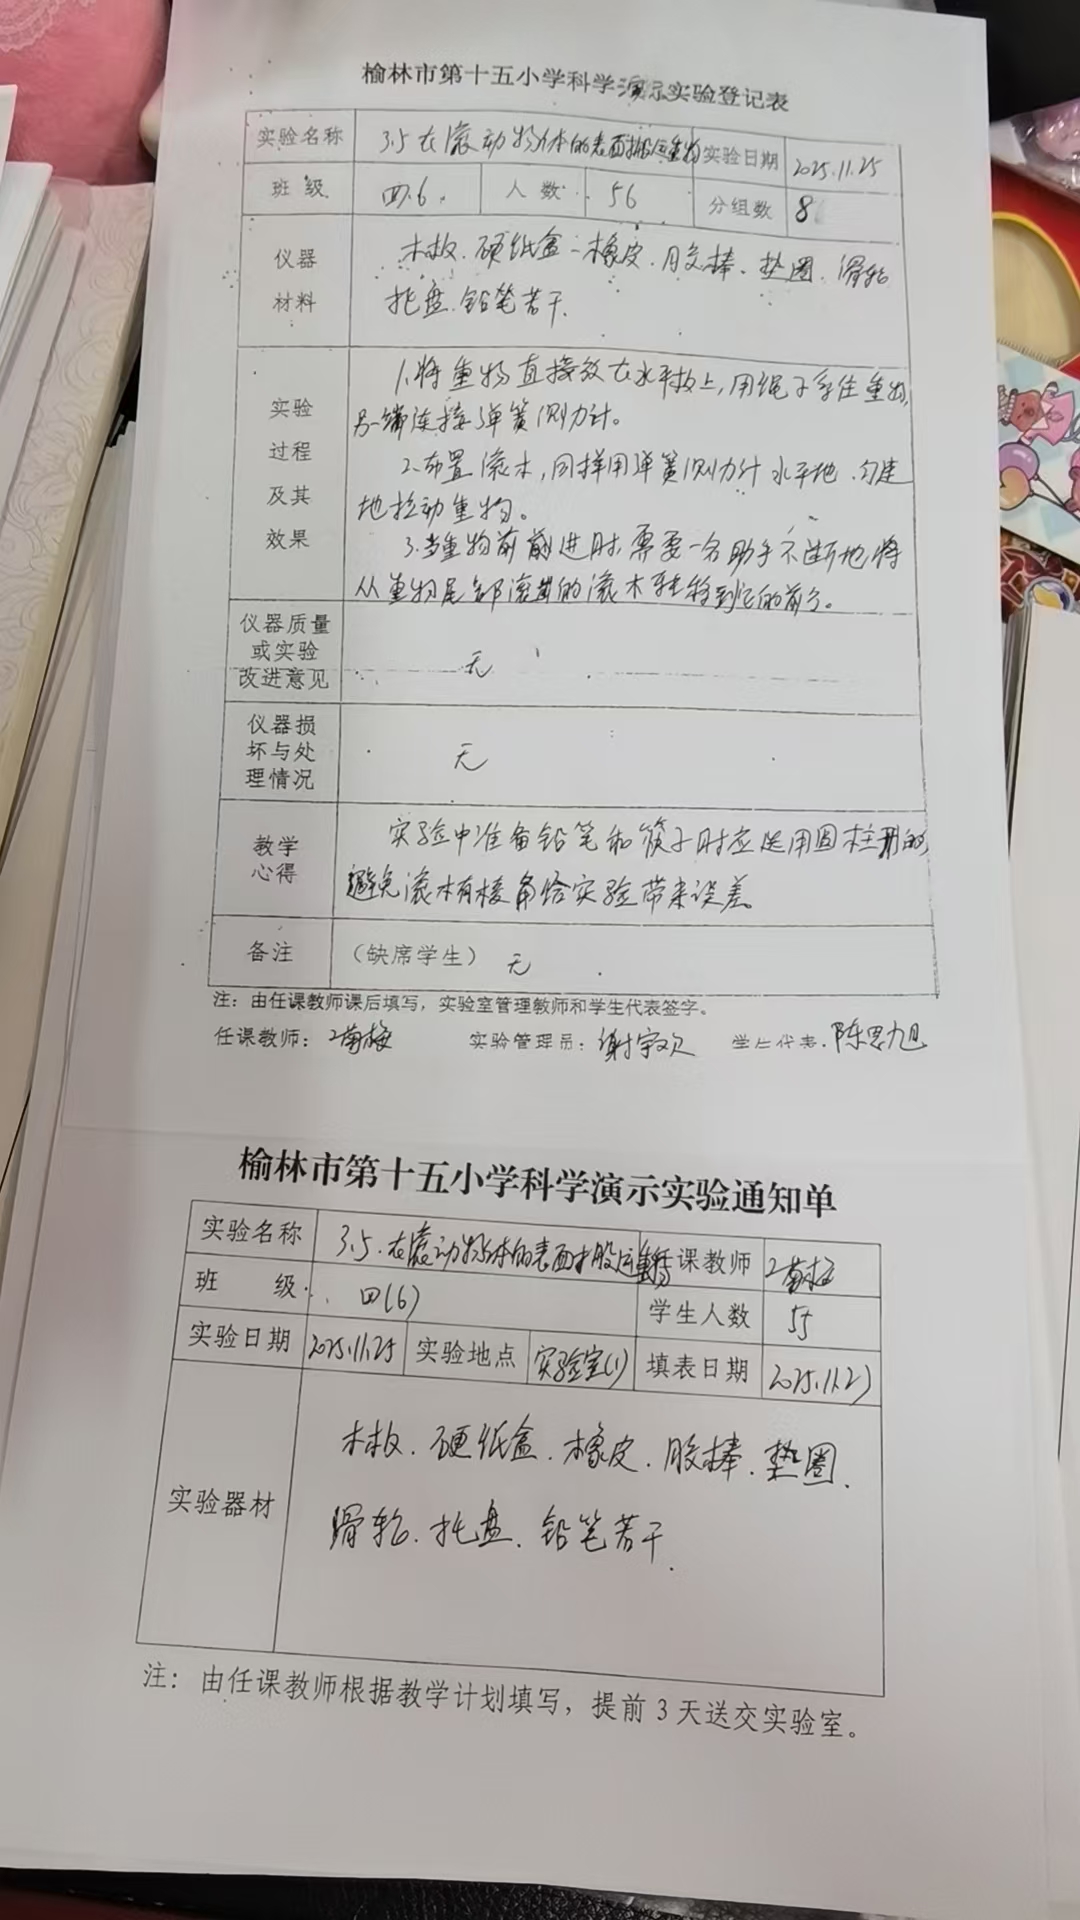 榆林市第十五小学科学演示实验登记表
实验名称 3.5 在滚动物体的表面搬运重物 实验日期 2025.11.25
班级 四.6. 人数 56 分组数 8
仪器材料 木板.硬纸盒-橡皮.胶棒.垫圈.滑轮
托盘.铅笔若干.
实验过程及其效果 1.将重物直接放在水平板上,用绳子系住重物,
另一端连接弹簧测力计。
2.布置滚木,同样用弹簧测力计水平地.匀速
地拉动重物。
3.当重物前前进时,需要一名助手不断地将
从重物尾部滚出的滚木转移到它的前方。
仪器质量或实验改进意见 无
仪器损坏与处理情况 无
教学心得 实验中准备铅笔和筷子时应选用圆柱形的,
避免滚木有棱角给实验带来误差。
备注 (缺席学生) 无
注:由任课教师课后填写,实验室管理教师和学生代表签字。
任课教师: 实验管理员:谢宇欢 学生代表.陈思旭
榆林市第十五小学科学演示实验通知单
实验名称 3.5.在滚动物体的表面搬运重物 任课教师
班级 四(6) 学生人数 55
实验日期 2025.11.25 实验地点 实验室(1) 填表日期 2025.11.21
实验器材 木板.硬纸盒.橡皮.胶棒.垫圈.
滑轮.托盘.铅笔若干.
注:由任课教师根据教学计划填写,提前3天送交实验室。